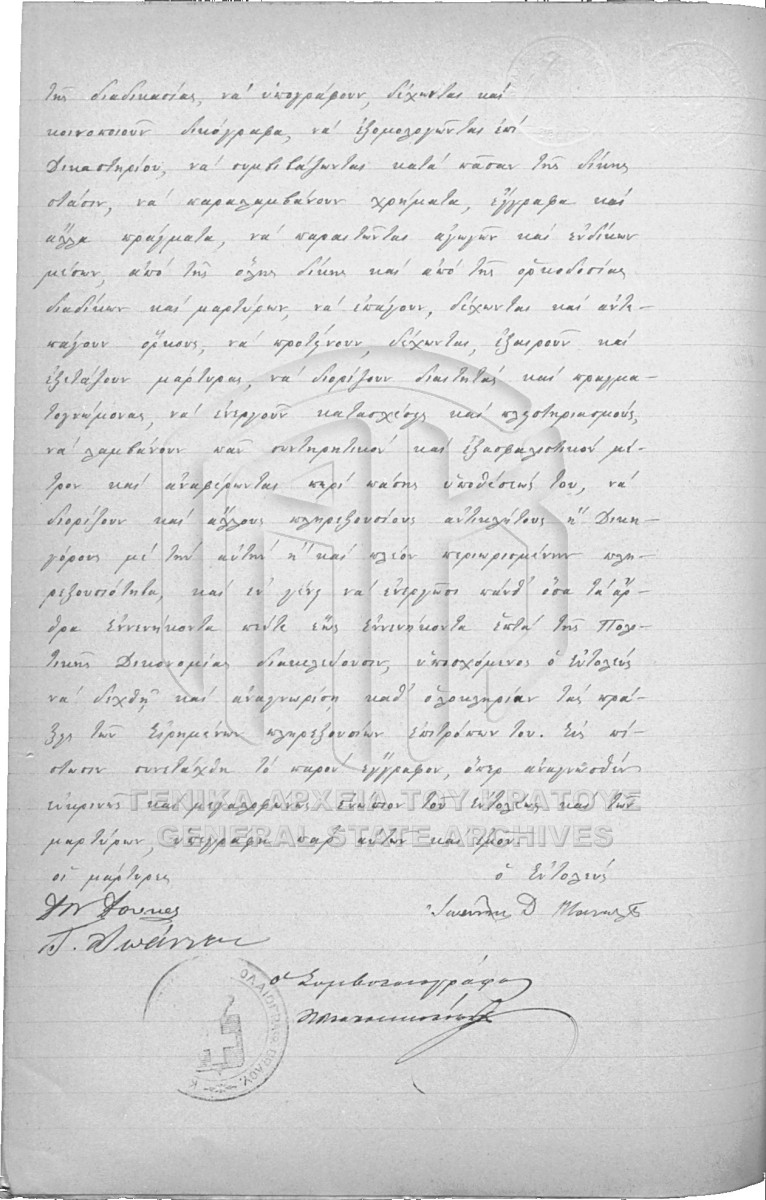 τῆς διαδικασίας, νά ὑπογράφουν, δέχωνται καί
κοινοποιοῦν δικόγραφα, νά ἐξομολογῶνται ἐπί
Δικαστηρίου, νά συμβιβάζωνται κατά πᾶσαν τῆς δίκης
στάσιν, νά παραλαμβάνουν χρήματα, ἔγγραφα καί
ἄλλα πράγματα, νά παραιτῶνται ἀγωγῶν καί ἐνδίκων
μέσων, ἀπό τῆς ὅλης δίκης καί ἀπό τῆς ὁρκοδοσίας
διαδίκων καί μαρτύρων, νά ἐπάγουν, δέχωνται καί ἀντε-
πάγουν ὅρκους, νά προτείνουν, δέχωνται, ἐξαιροῦν καί
ἐξετάζουν μάρτυρας, νά διορίζουν διαιτητάς καί πραγμα-
τογνώμονας, νά ἐνεργοῦν κατασχέσεις καί πλειστηριασμούς,
νά λαμβάνουν πᾶν συντηρητικόν καί ἐξασφαλιστικόν μέ-
τρον καί ἀναφέρωνται περί πάσης ὑποθέσεώς του, νά
διορίζουν καί ἄλλους πληρεξουσίους ἀντικλήτους ἤ Δικη-
γόρους μέ τήν αὐτήν ἤ καί πλέον περιωρισμένην πλη-
ρεξουσιότητα, καί ἐν γένει νά ἐνεργῶσι πάνθ' ὅσα τά ἄρ-
θρα ἐννενήκοντα πέντε ἕως ἐννενήκοντα ἑπτά τῆς Πολι-
τικῆς Δικονομίας διακελεύουσιν, ὑποσχόμενος ὁ Ἐντολεύς
νά δεχθῇ καί ἀναγνωρίσῃ καθ' ὁλοκληρίαν τάς πρά-
ξεις τῶν εἰρημένων πληρεξουσίων ἐπιτρόπων του. Εἰς πί-
στωσιν συνετάχθη τό παρόν ἔγγραφον, ὅπερ ἀναγνωσθέν
εὐκρινῶς καί μεγαλοφώνως ἐνώπιον τοῦ Ἐντολέως καί τῶν
μαρτύρων, ὑπεγράφη παρ' αὐτῶν καί ἐμοῦ.
οἱ μάρτυρες ὁ Ἐντολεύς
Ἰωάννης Δ.
ὁ Συμβολαιογράφος
ΓΕΝΙΚΑ ΑΡΧΕΙΑ ΤΟΥ ΚΡΑΤΟΥΣ
GENERAL STATE ARCHIVES